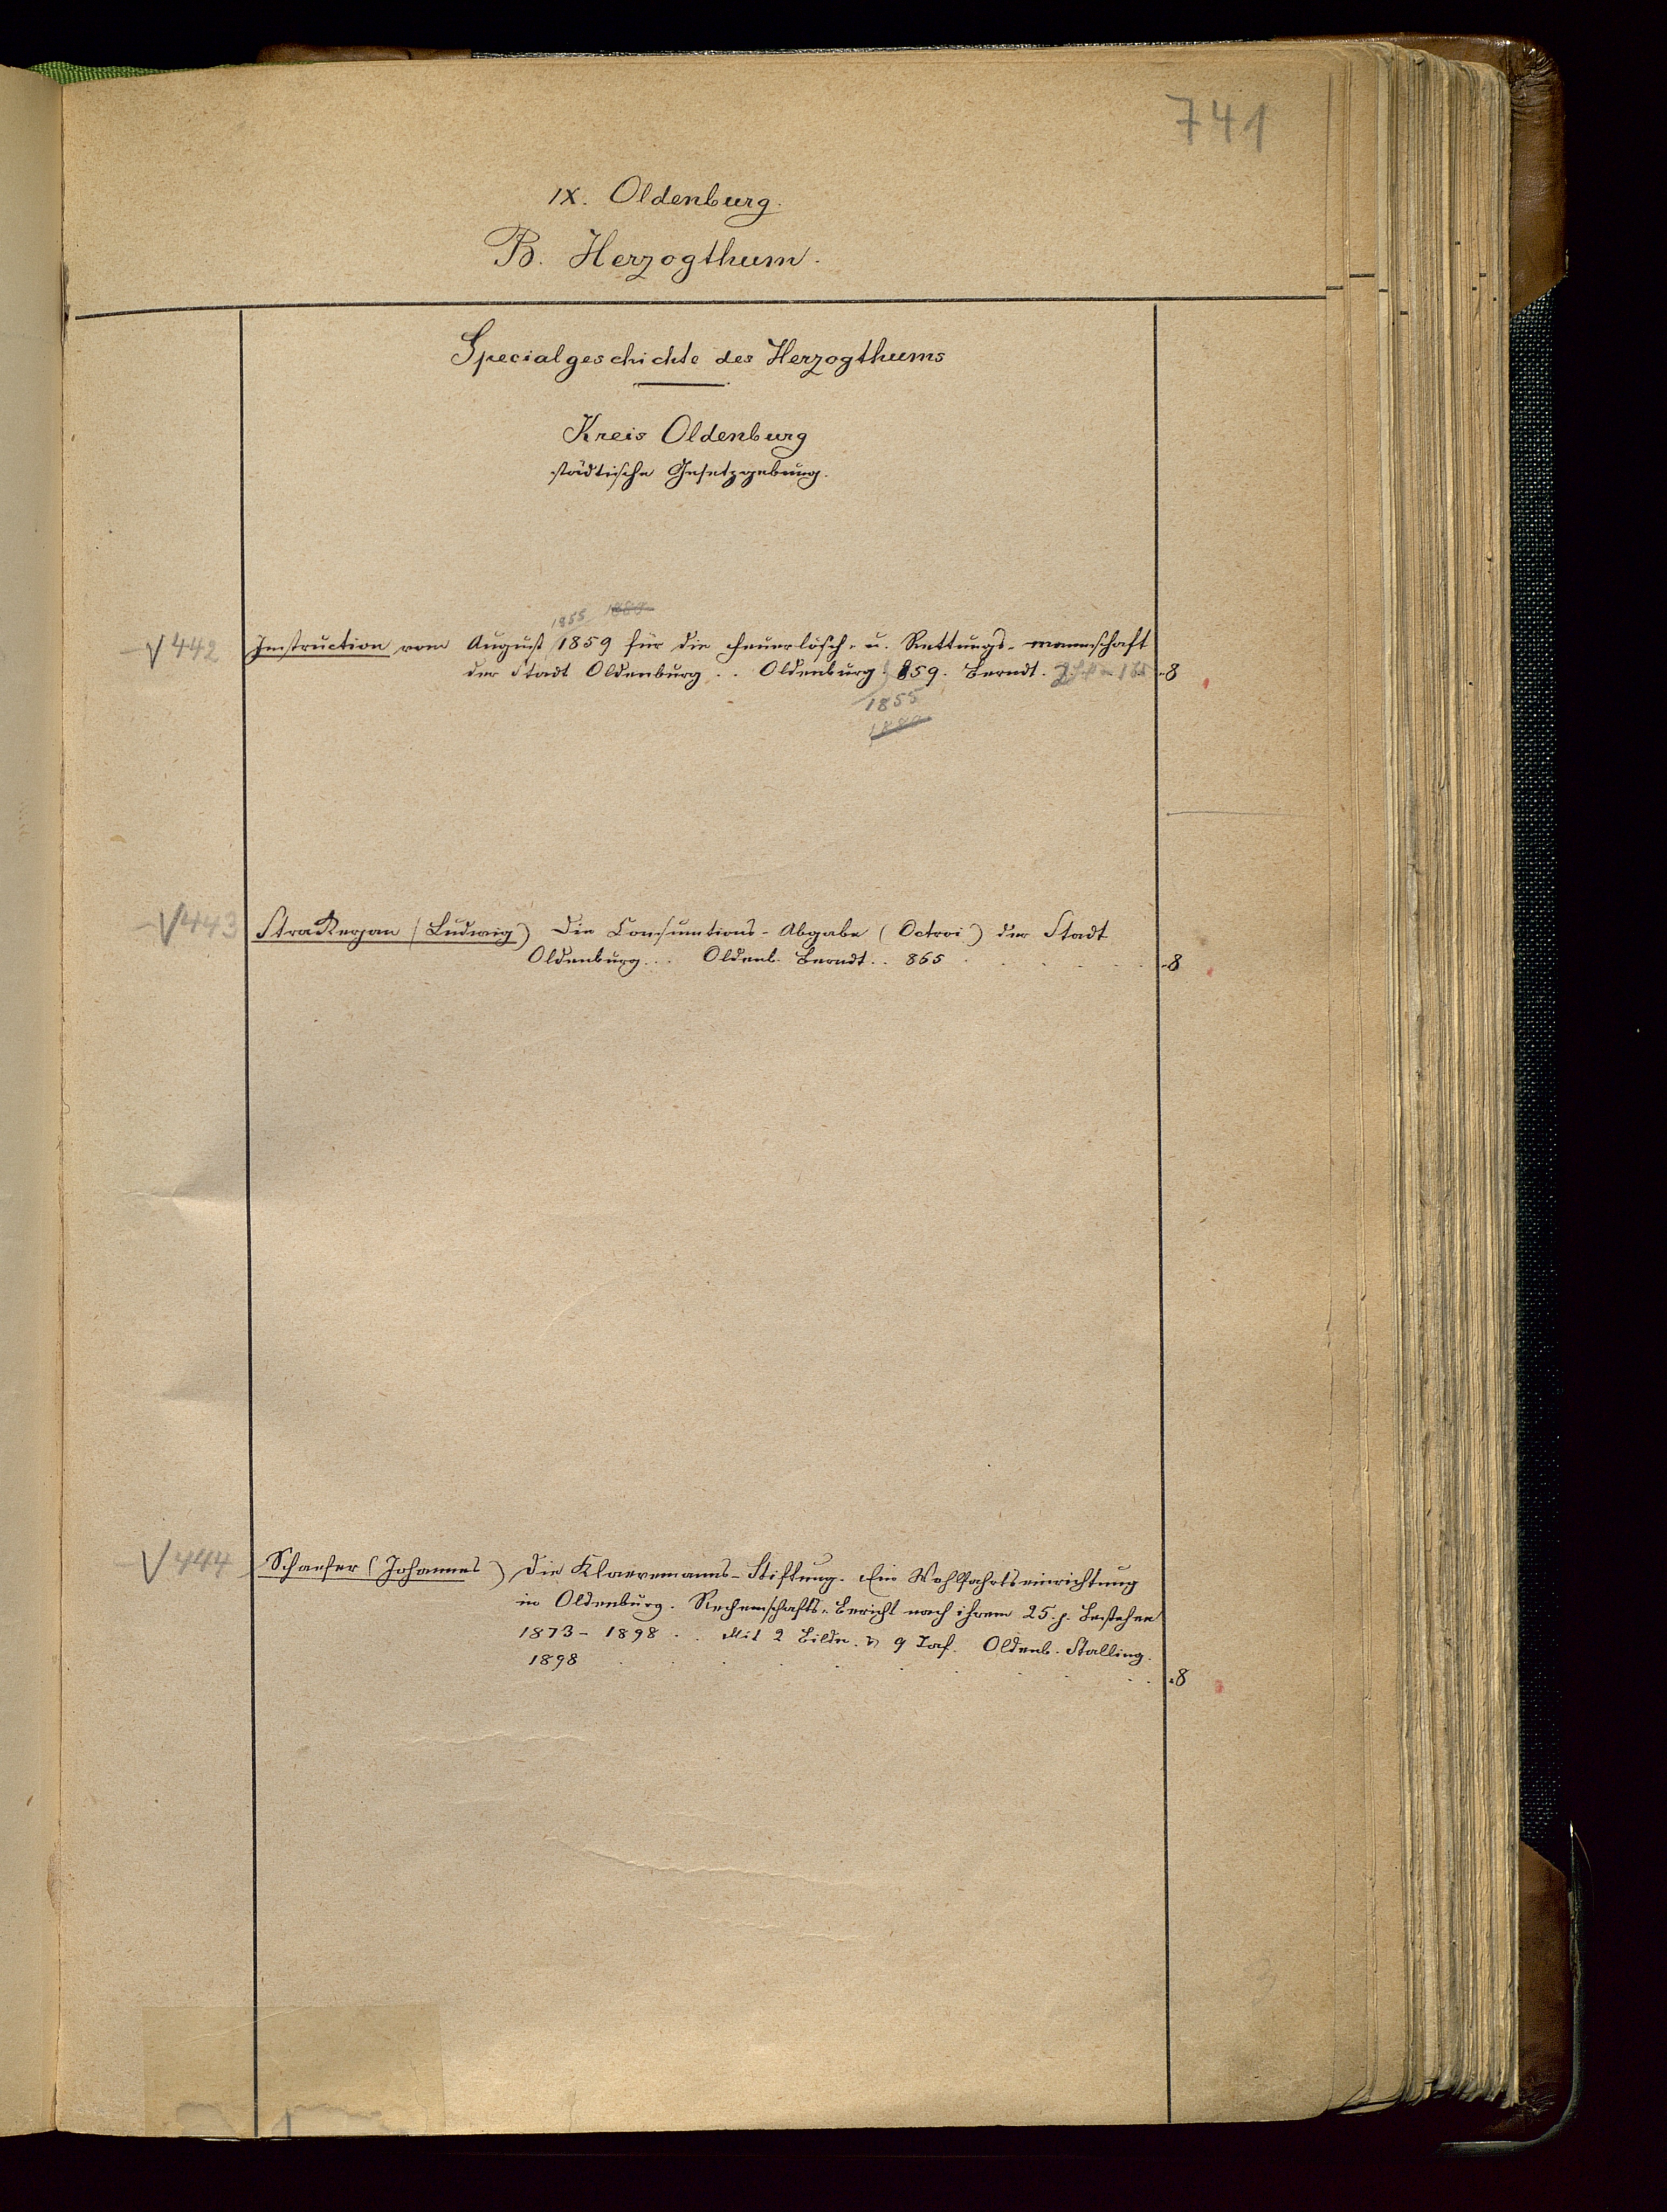 741
IX. Oldenburg.
B. Herzogthum.
Specialgeschichte des Herzogthums
Kreis Oldenburg
städtische Gesetzgebung.
1855
V 442 Instruction vom August 1859 für die Feuerlösch- u. Rettungs-mannschaft
der Stadt Oldenburg . . Oldenburg. 859. Berndt. 8
1855
V 443 Strakerjan (Ludwig) Die Consumtions-Abgabe (Octroi) der Stadt
Oldenburg . . . Oldenb. Berndt . . 865 8
V 444 Schaefer (Johannes) Die Klaevemanns-Stiftung. Ein Wohlfahrtseinrichtung
in Oldenburg. Rechenschafts-Bericht nach ihrem 25. j. Bestehen
1873 - 1898 . . Mit 2 Bildn. u 9 Taf. Oldenb. Stalling.
1898 8